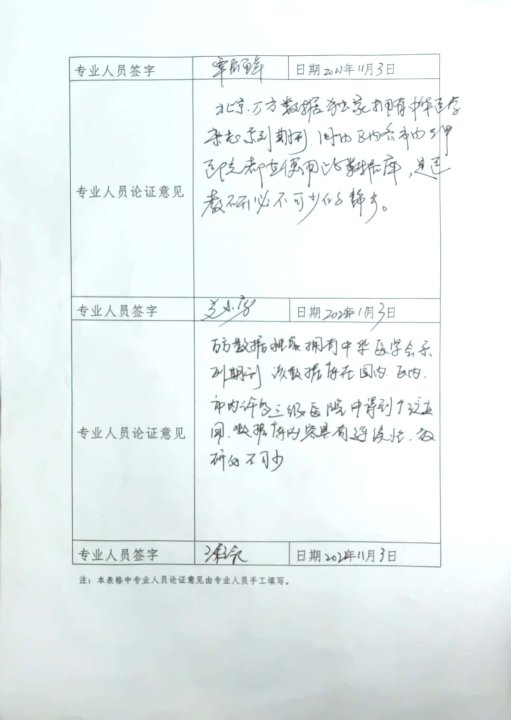 专业人员签字 日期 2021年11月3日
北京万方数据独家拥有中华医学
杂志系列期刊,国内区内各市内三甲
医院都在使用此数据库,是医
教研必不可少的
专业人员论证意见
专业人员签字 日期 2021年11月3日
万方数据独家拥有中华医学会系
列期刊 该数据库在国内、区内、
市内许多三级医院中得到广泛应
用、数据库内容具有连续性、教
专业人员论证意见
研必不可少
专业人员签字 日期 2021年11月3日
注:本表格中专业人员论证意见由专业人员手工填写。